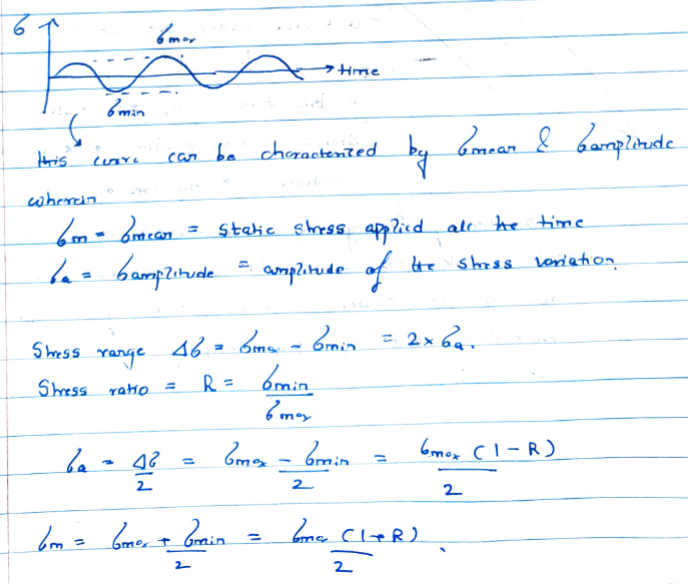 σ
σmax
time
σmin
this curve can be characterized by σmean & σamplitude
wherein
σm = σmean = static stress applied all the time
σa = σamplitude = amplitude of the stress variation.
Stress range Δσ = σmax - σmin = 2 × σa.
Stress ratio = R = σmin / σmax
σa = Δσ/2 = (σmax - σmin)/2 = σmax (1 - R)/2
σm = (σmax + σmin)/2 = σmax (1+R)/2.